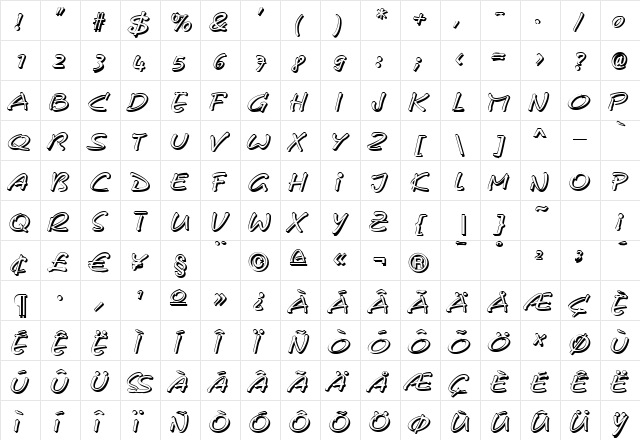 ! " # $ % & ' ( ) * + , - . / 0
1 2 3 4 5 6 7 8 9 : ; < = > ? @
A B C D E F G H I J K L M N O P
Q R S T U V W X Y Z [ \ ] ^ _ `
A B C D E F G H I J K L M N O P
Q R S T U V W X Y Z { | } ~ ¡
¢ £ € ¥ § ¨ © ª « ¬ ® ¯ ° ² ³ ´
¶ · ¸ ¹ º » ¿ À Á Â Ã Ä Å Æ Ç È
É Ê Ë Ì Í Î Ï Ñ Ò Ó Ô Õ Ö × Ø Ù
Ú Û Ü SS À Á Â Ã Ä Å Æ Ç È É Ê Ë
Ì Í Î Ï Ñ Ò Ó Ô Õ Ö Ø Ù Ú Û Ü Ÿ